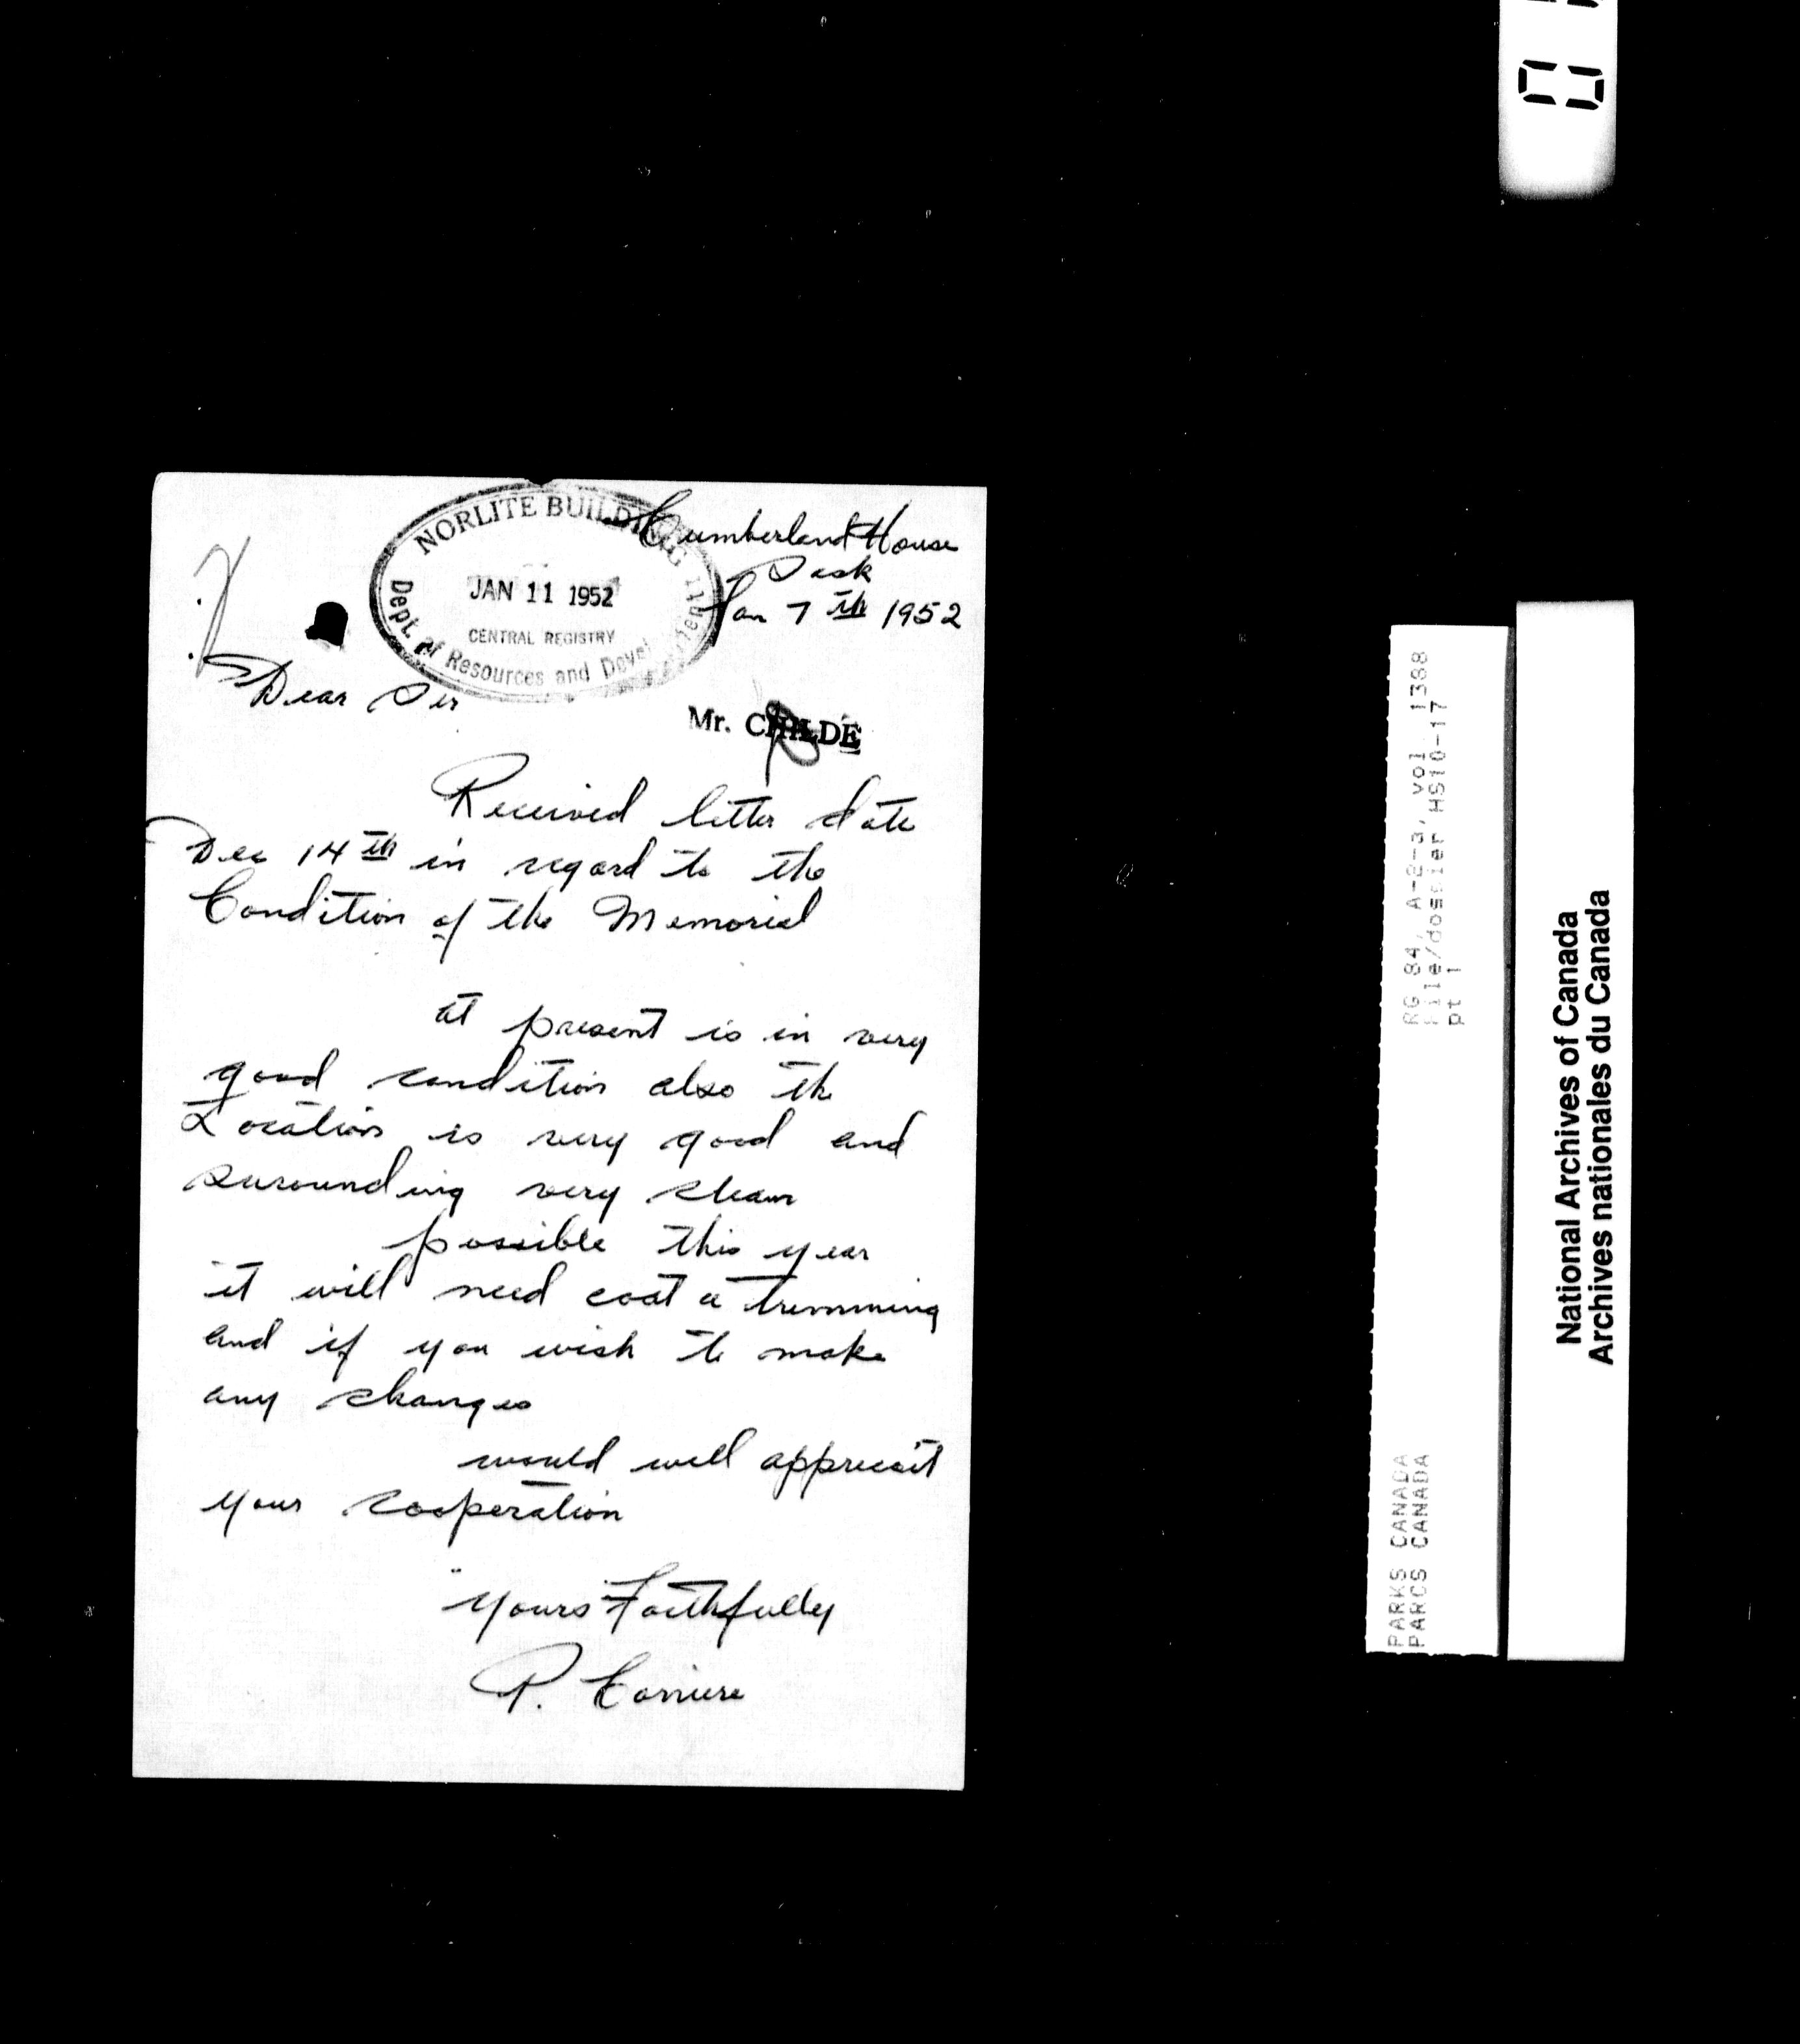 NORLITE BUILDING
JAN 11 1952
CENTRAL REGISTRY
Dept. of Resources and Devel
Cumberland House
Sask
Jan 7th 1952
Dear Sir
Mr. CHILDE
Received letter date
Dec 14th in regard to the
Condition of the Memorial
at present is in very
good condition also the
Location is very good and
surounding very clean
possible this year
it will need coat a trimming
and if you wish to make
any changes
would well appreciat
your cooperation
Yours Faithfully
P. Carriere
RG 84, A-2-a, vol 1388
File/dossier HS10-17
pt 1
PARKS CANADA
PARCS CANADA
National Archives of Canada
Archives nationales du Canada